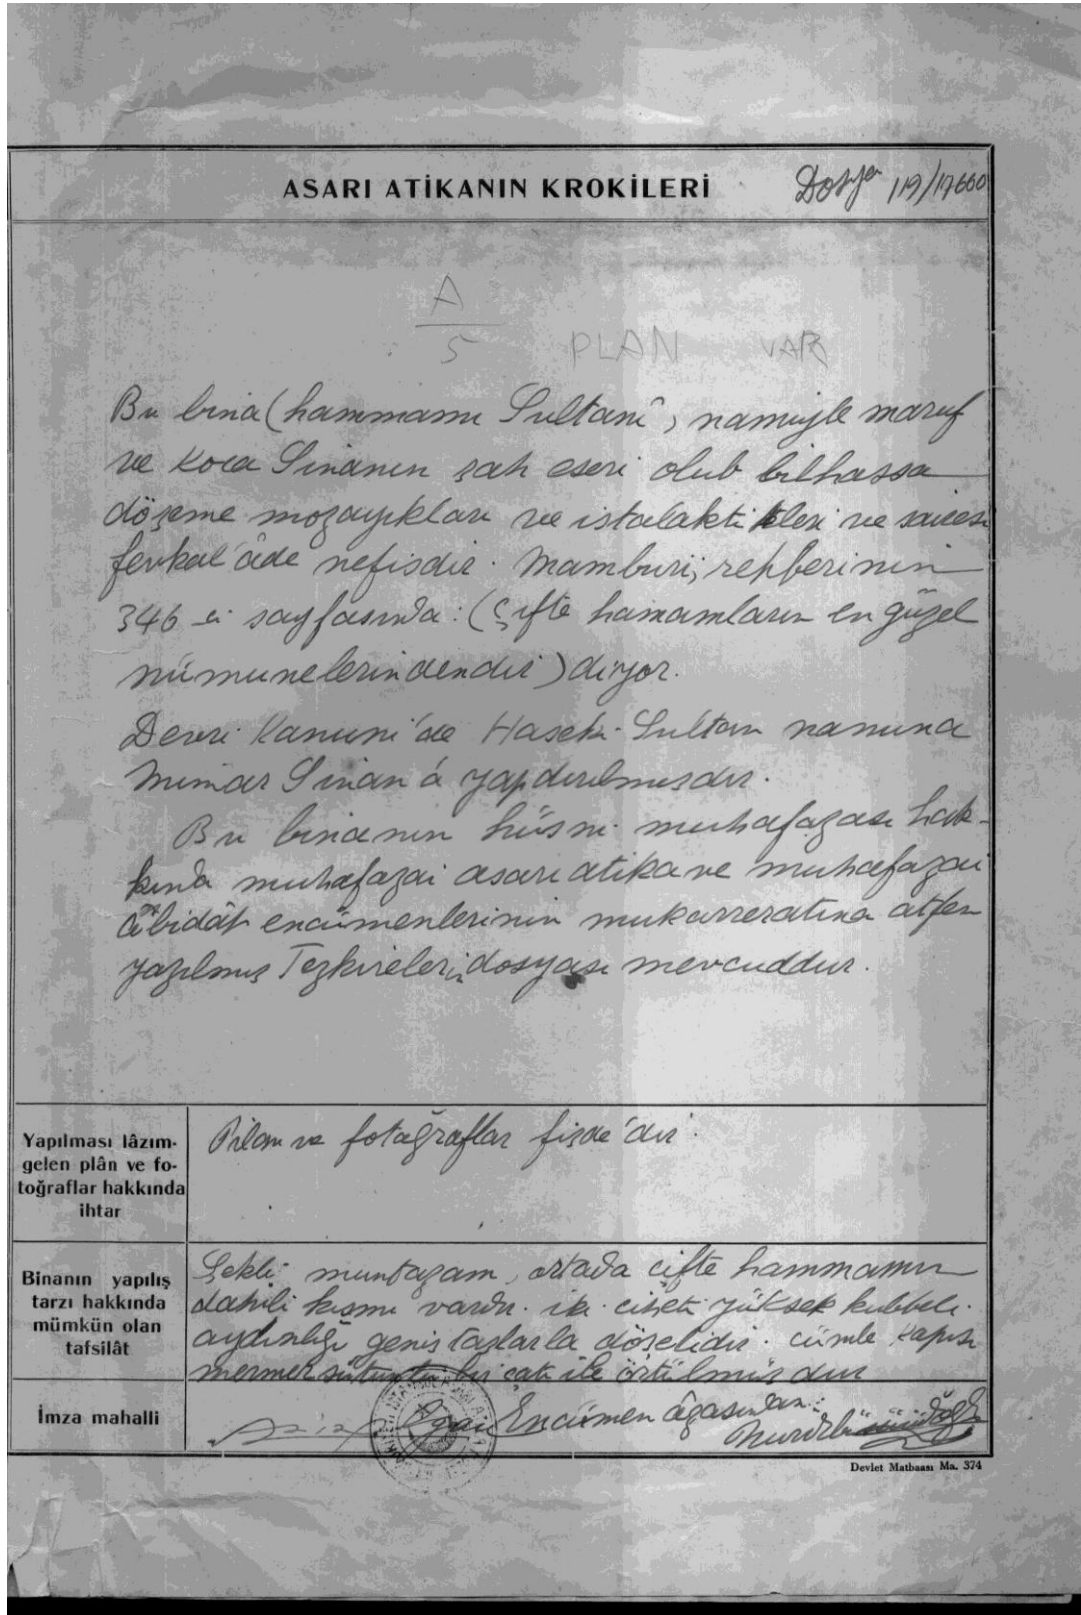 ASARI ATİKANIN KROKİLERİ
Dosya 119/17660
A
5
PLAN VAR
Bu bina (hammamı Sultanî) namiyle maruf
ve Koca Sinanın şah eseri olub bilhassa
döşeme mozayıkları ve istalaktikleri ve sairesi
fevkal'âde nefisdir. Mamburi, rehberinin
346 cı sayfasında: (Çifte hamamların en güzel
nümunelerindendir) diyor.
Devri Kanuni'de Haseki Sultan namına
Mimar Sinan'a yapdırılmışdır.
Bu binanın hüsni muhafazası hak-
kında muhafazai asarı atika ve muhafazai
âbidât encümenlerinin mukarreratına atfen
yazılmış Tezkireleri, dosyası mevcuddur.
Yapılması lâzım-
gelen plân ve fo-
toğraflar hakkında
ihtar
Pilan ve fotağraflar fişde'dir.
Binanın yapılış
tarzı hakkında
mümkün olan
tafsilât
Şekli muntazam, ortada çifte hammamın
dahili kısmı vardır. iki ciheti yüksek kubbeli.
aydınlığı geniş taşlarla döşelidir. cümle kapısı
mermer sütunlu bir çatı ile örtülmüşdur
İmza mahalli
Aziz Ogan Encümen âzasından:
Devlet Matbaası Ma. 374